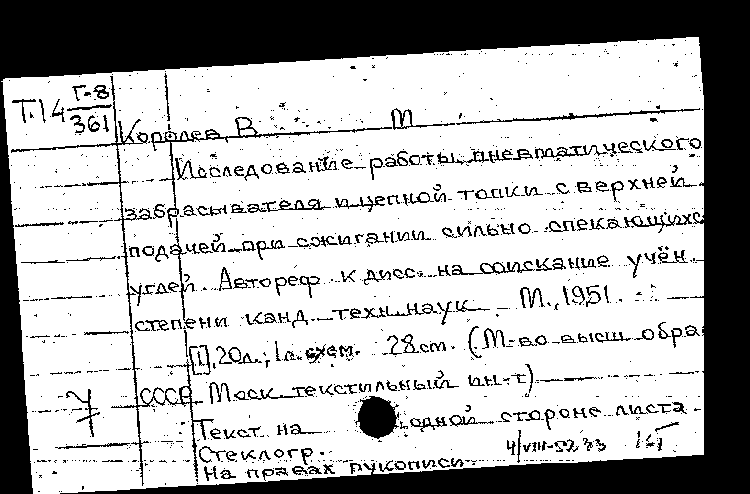 Т.14 Г-8
361
Королев, В М
Исследование работы пневматического
забрасывателя и цепной топки с верхней
подачей при сжигании сильно спекающихс
углей. Автореф. к дисс. на соискание учён.
степени канд. техн. наук М., 1951.
[1], 20л., 1л. схем. 28см. (М-во высш. обра
СССР. Моск. текстильный ин-т)
Текст на одной стороне листа.
Стеклогр.
На правах рукописи.
4/VIII-52